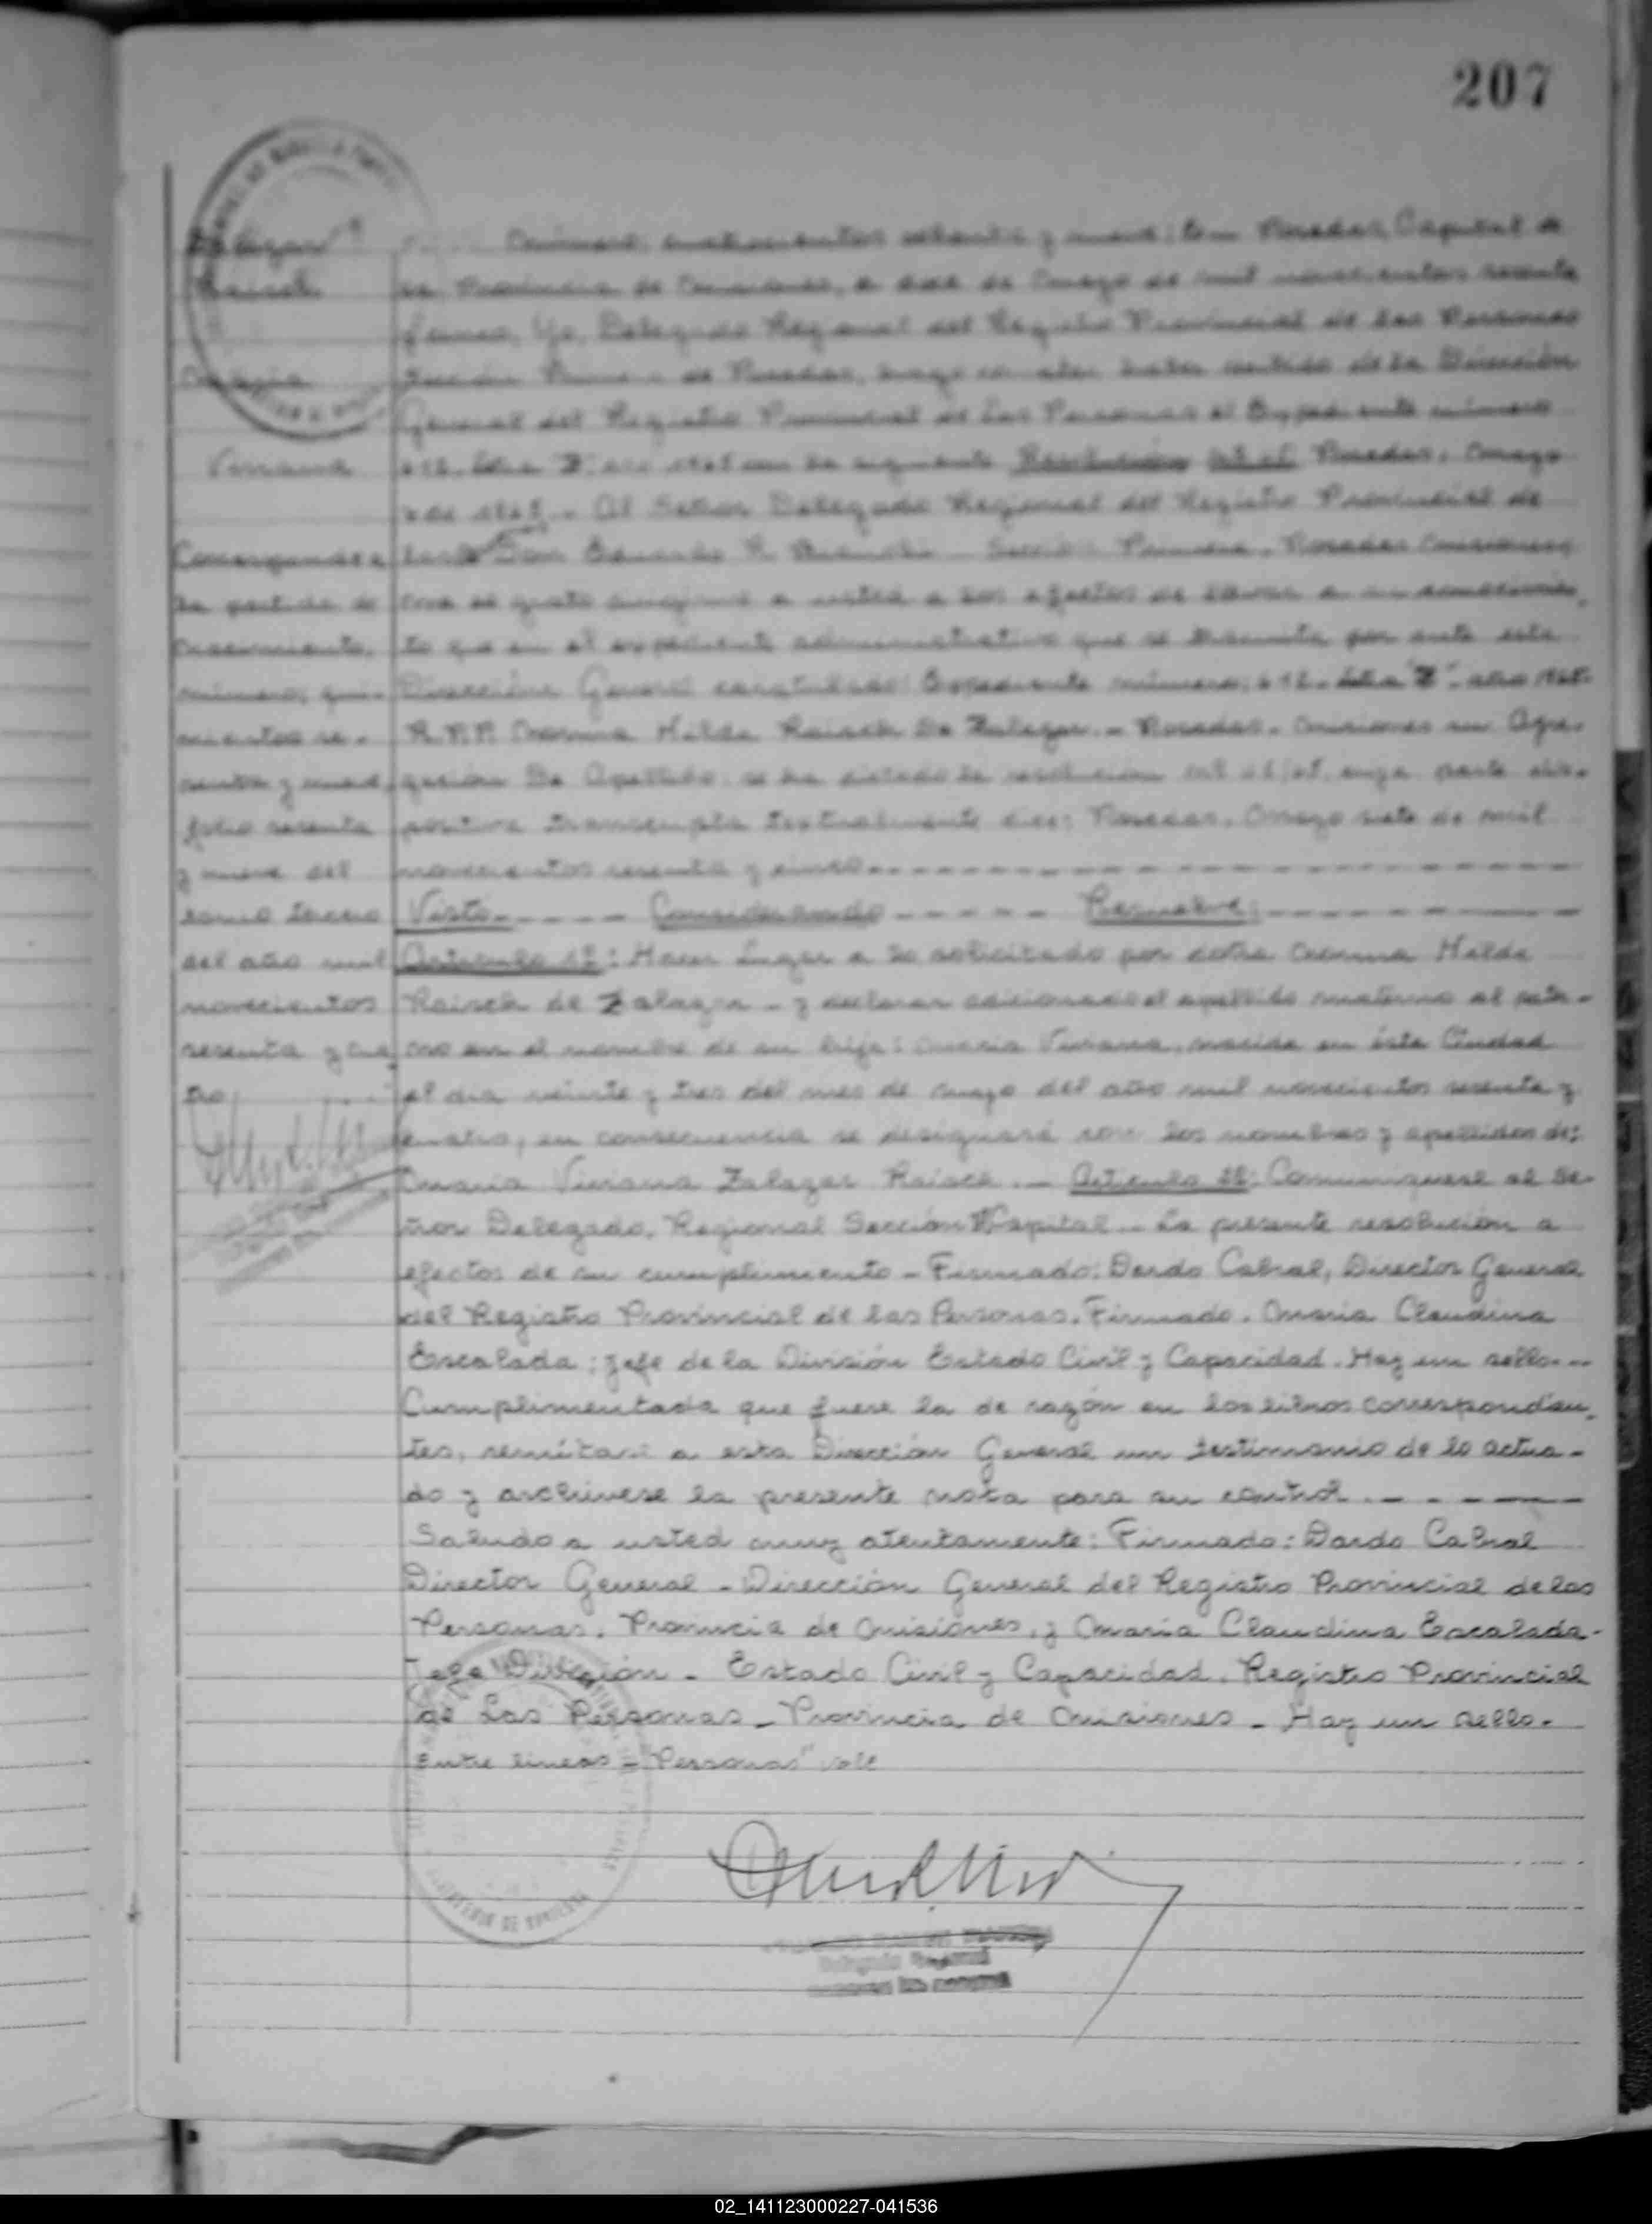 207
Zalazar
Raisch
María
Viviana
Corresponde a
la partida de
nacimiento,
número, qui-
nientos se-
senta y nueve,
folio sesenta
y nueve del
tomo tercero
del año mil
novecientos
sesenta y cua
tro.
Número: cuatrocientos ochenta y nueve: En Posadas, Capital de
la Provincia de Misiones, a doce de Mayo de mil novecientos sesenta
y cinco, Yo, Delegado Regional del Registro Provincial de las Personas
Sección Primera de Posadas, hago constar haber recibido de la Dirección
General del Registro Provincial de las Personas el Expediente número
612. Letra Z, año 1965 con la siguiente Resolución Posadas, Mayo
de 1965 - Al Señor Delegado Regional del Registro Provincial de
las Don Eduardo R. Sección Primera. Posadas Misiones
el grato dirigirme a usted a los efectos de llevar a su conocimien-
to que en el expediente administrativo que se tramita por ante esta
Dirección General caratulado: Expediente número: 612. Letra "Z" - año 1965.
R.P.P. Norma Hilda Raisch De Zalazar. - Posadas. Misiones su Agre-
gación De Apellido. se ha dictado la resolución cuya parte dis-
positiva transcripta textualmente dice: Posadas, Mayo siete de mil
novecientos sesenta y cinco.- - - - - - - - - - - - - - -
Visto - - - - - Considerando - - - - - - Resuelve: - - - - - - - -
Artículo 1º: Hacer Lugar a lo solicitado por doña Norma Hilda
Raisch de Zalazar - y declarar adicionado el apellido materno al pater-
no en el nombre de su hija: María Viviana, nacida en ésta Ciudad
el día veinte y tres del mes de mayo del año mil novecientos sesenta y
cuatro, en consecuencia se designará con los nombres y apellidos de:
María Viviana Zalazar Raisch. - Artículo 2º: Comuníquese al Se-
ñor Delegado, Regional Sección Capital - La presente resolución a
efectos de su cumplimiento - Firmado: Dardo Cabral, Director General
del Registro Provincial de las Personas. Firmado. María Claudina
Escalada; Jefe de la División Estado Civil y Capacidad. Hay un sello.--
Cumplimentada que fuere la de razón en los libros correspondien-
tes, remítase a esta Dirección General un testimonio de lo actua-
do y archívese la presente nota para su control. - - - - - -
Saludo a usted muy atentamente: Firmado: Dardo Cabral
Director General - Dirección General del Registro Provincial de las
Personas. Provincia de Misiones, y María Claudina Escalada-
Jefe División - Estado Civil y Capacidad. Registro Provincial
de Las Personas - Provincia de Misiones - Hay un sello.
Entre líneas - "Personas" vale
Delegado Regional
02_141123000227-041536